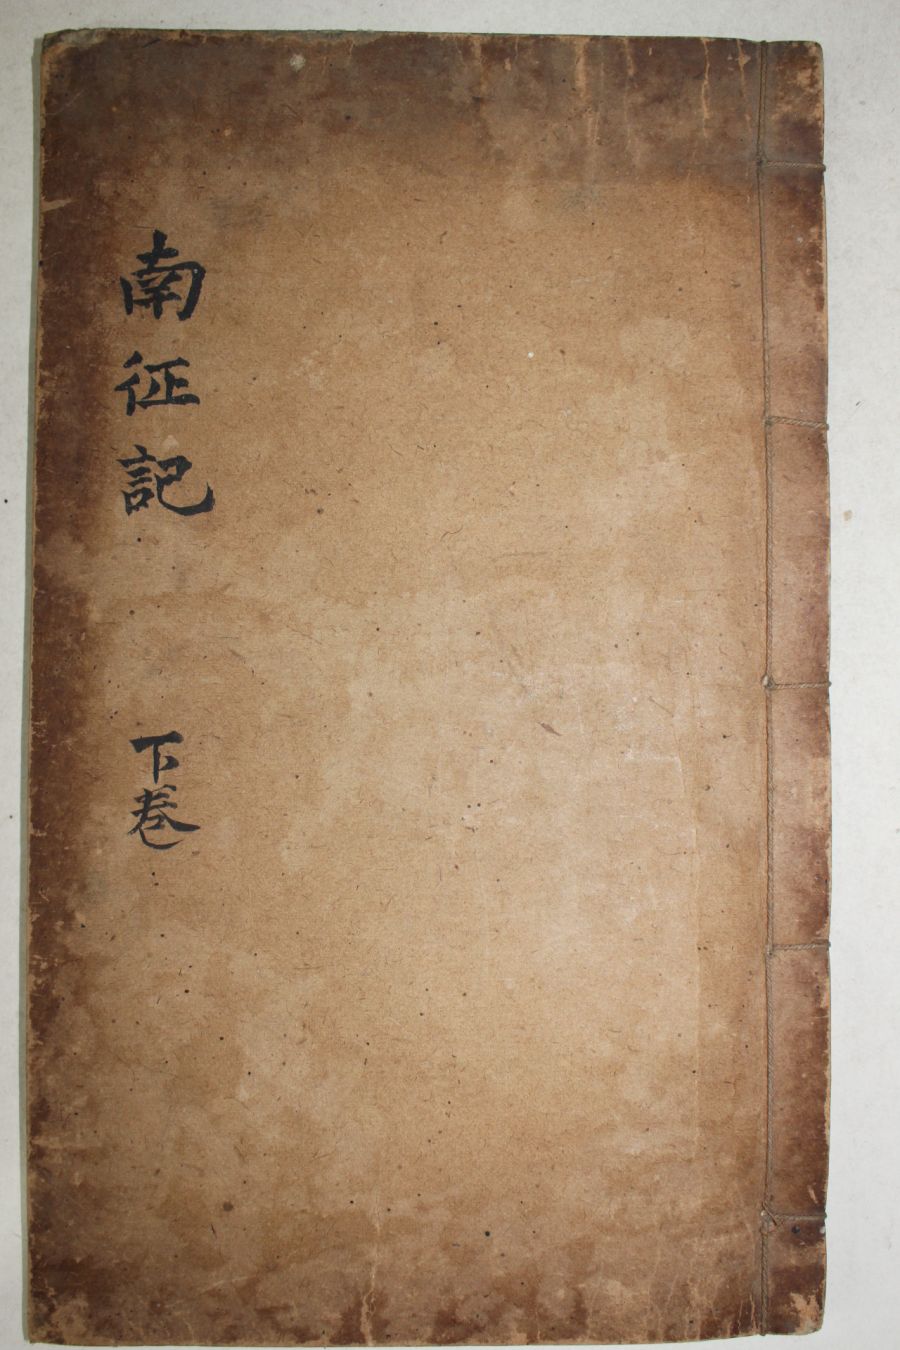 南征記
下卷